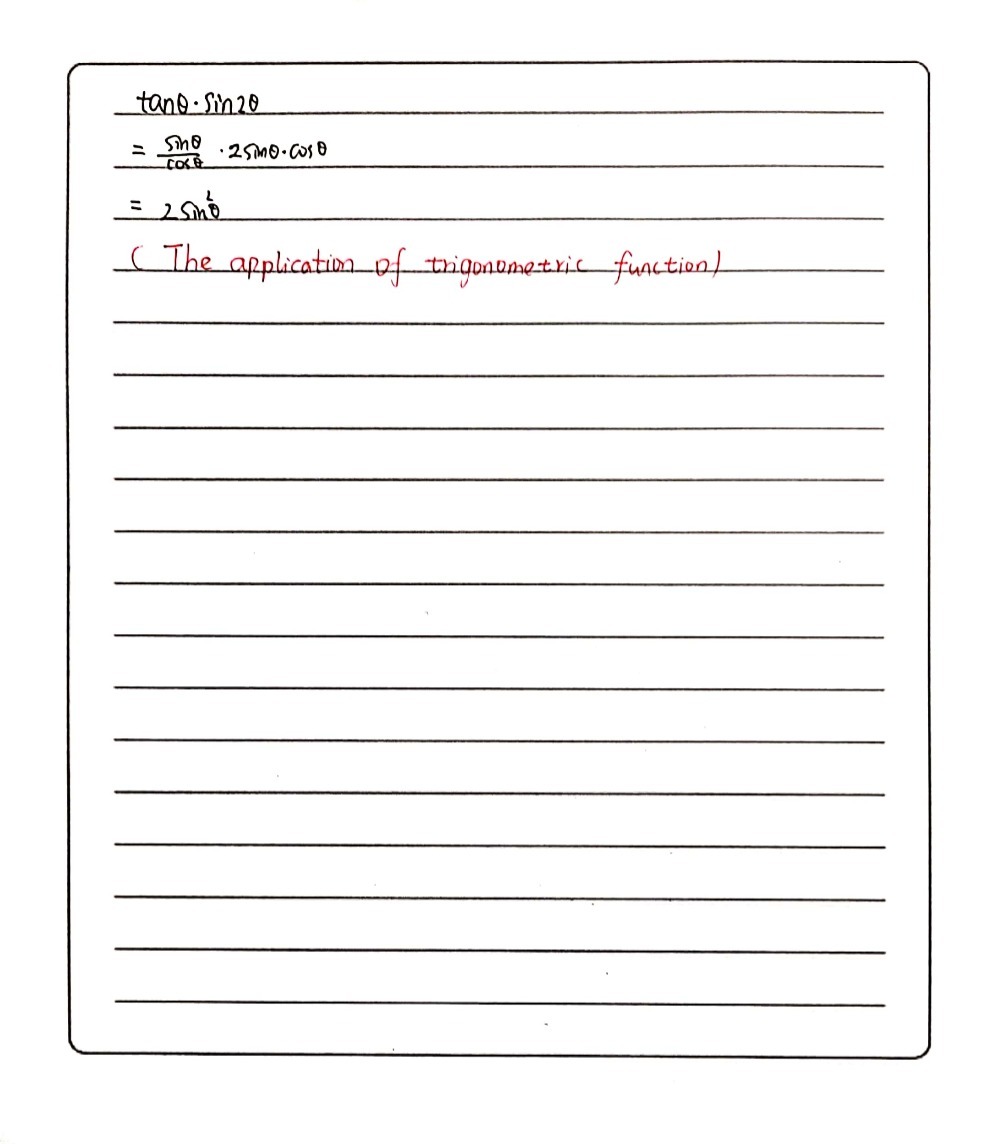 tanθ·sin2θ
= sinθ/cosθ ·2sinθ·cosθ
= 2sin²θ
(The application of trigonometric function)